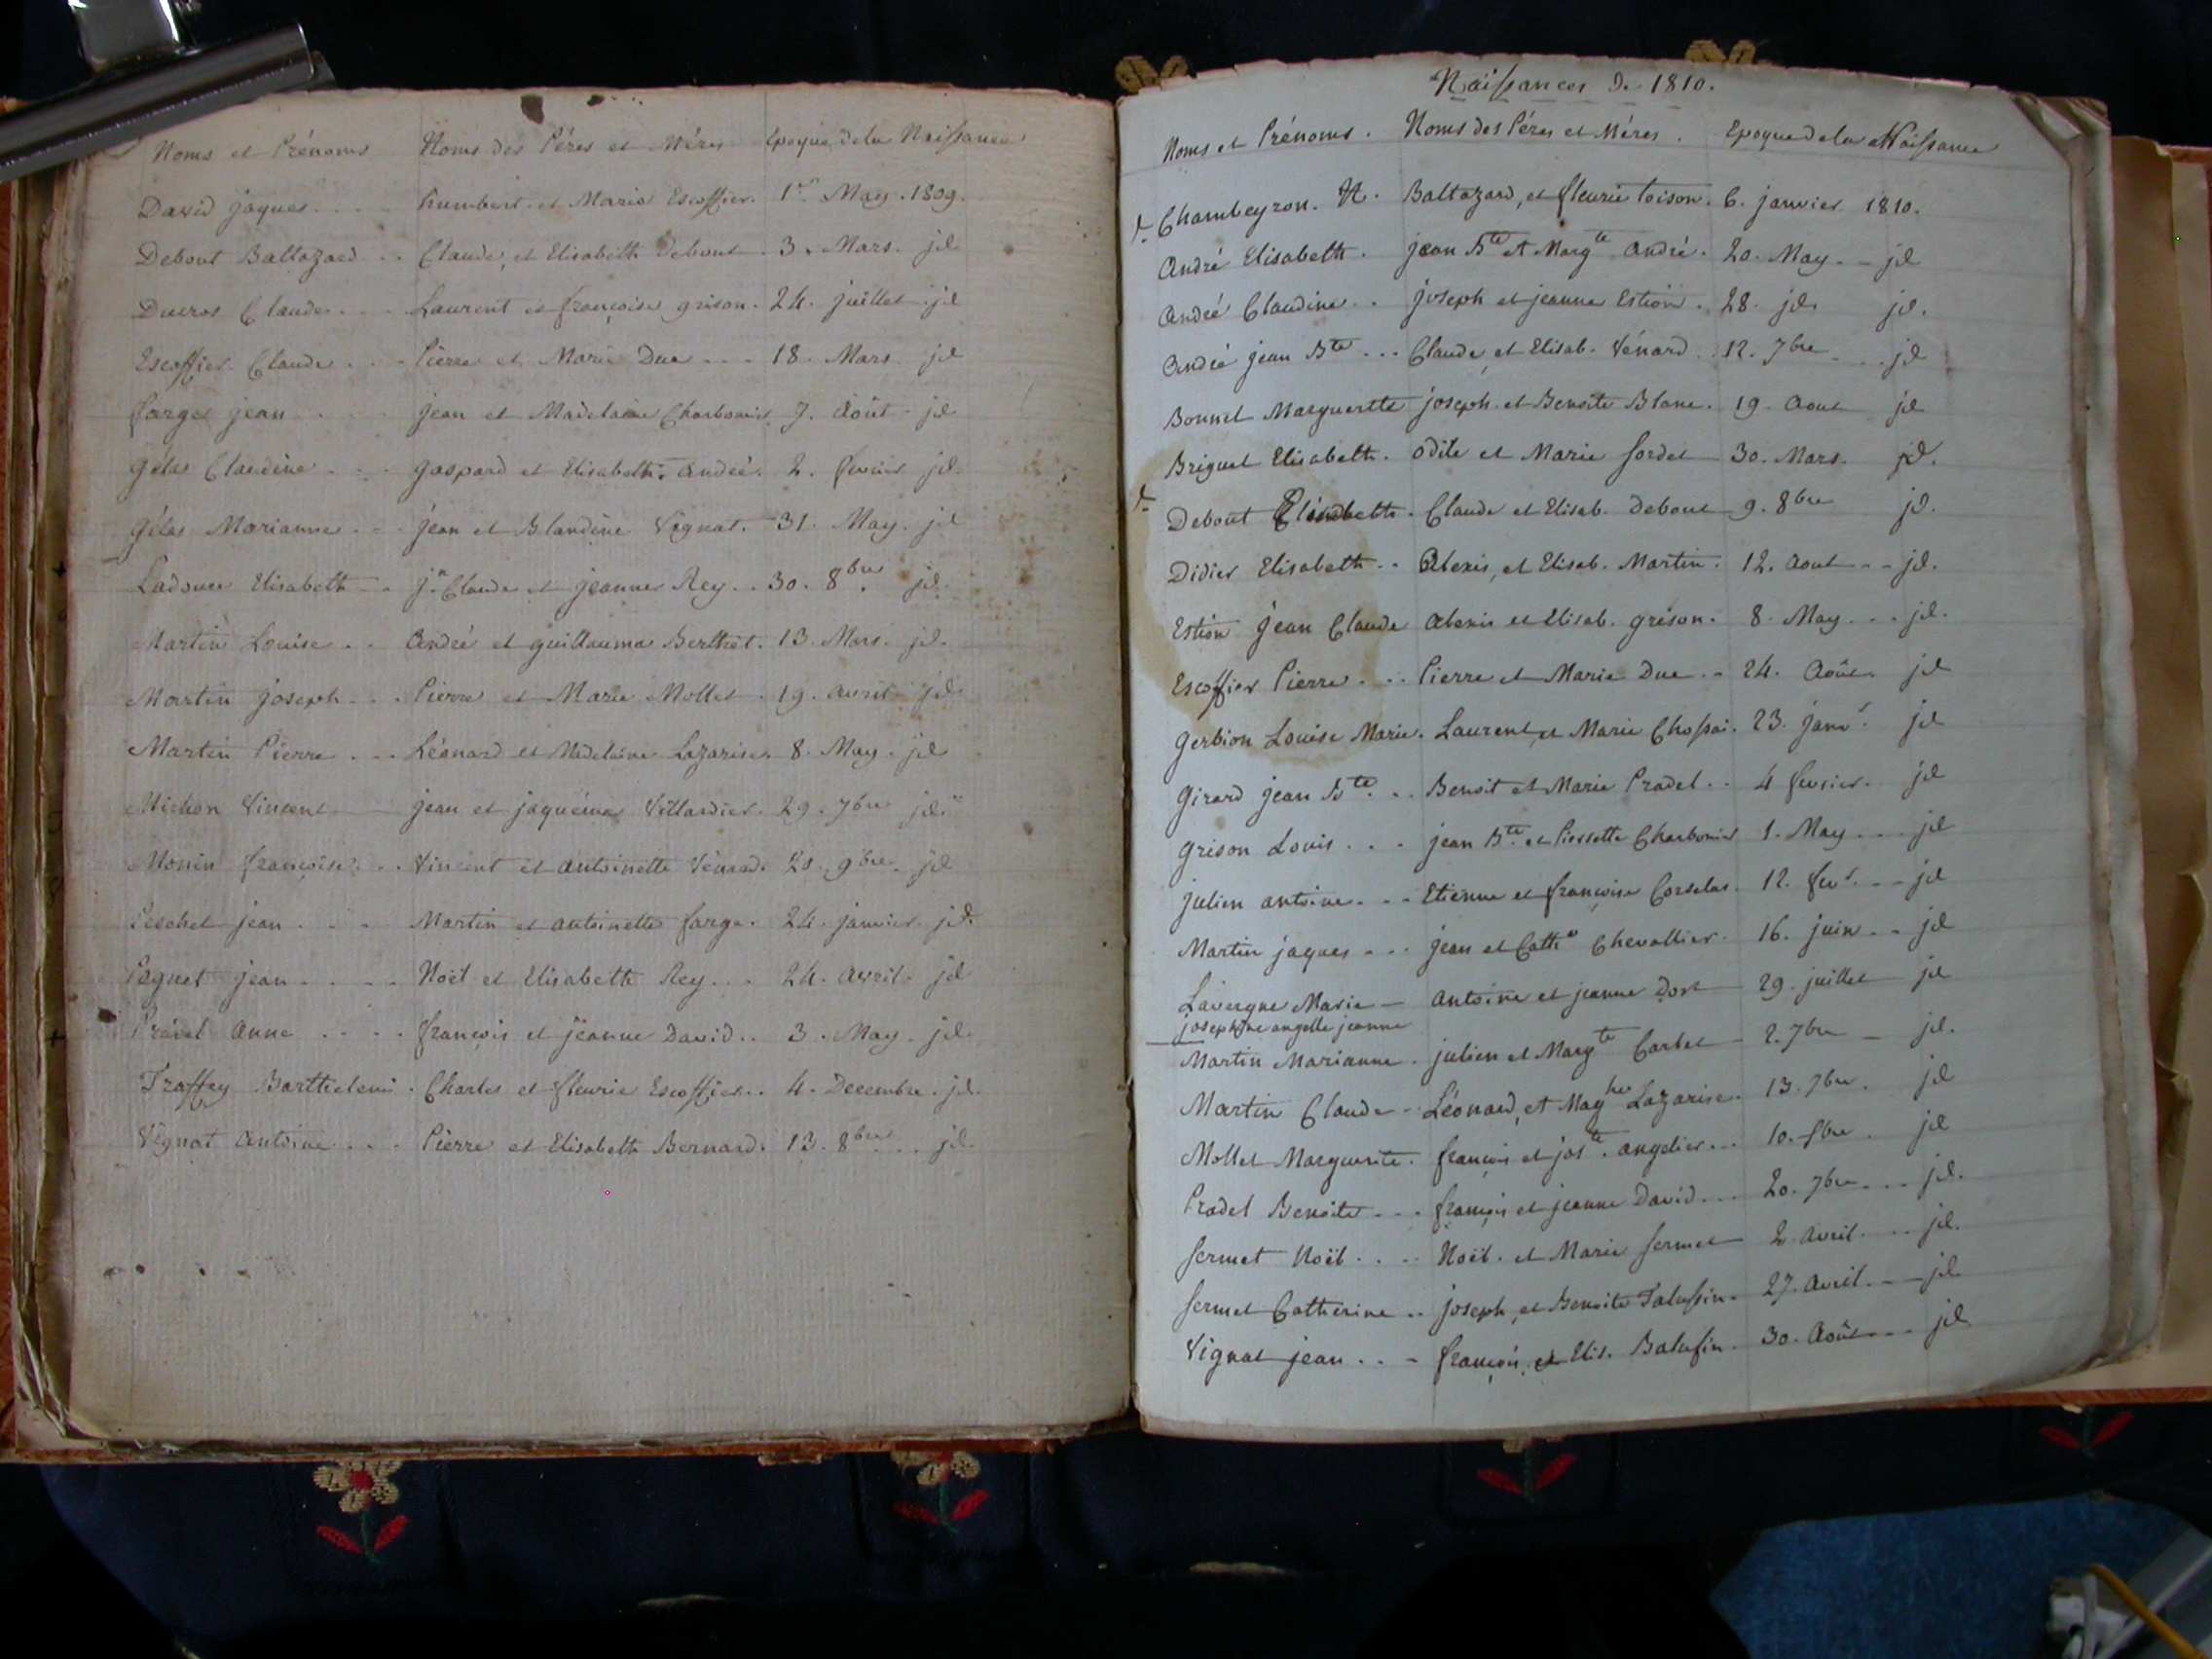 Noms et Prénoms Noms des Péres et Méres Epoque de la Naissance
David jaques.... humbert et Marie Escoffier. 1er May. 1809.
Debout Baltazard.. Claude, et Elisabeth Debout. 3. Mars. jd
Ducros Claude... Laurent et françoise grison. 24. juillet jd
Escoffier Claude... Pierre et Marie Duc... 18. Mars jd
farge jean.... jean et Madelaine Charbonier 7. Août - jd
gélas Claudine... gaspard et Elisabeth André. 2. fevrier jd.
gélas Marianne... jean et Blandine Vignat. 31. May. jd
Ladouce Elisabeth.. jn Claude et jeanne Rey.. 30. 8bre jd.
Martin Louise.. André et guillauma Berthet. 13. Mars. jd.
Martin joseph... Pierre et Marie Mollet. 19. avril jd.
Martin Pierre... Léonard et Madelaine Lazarise. 8. May. jd
Michon Vincent jean et jaquéma Villardier. 29. 7bre jd.
Monin françoise... Vincent et antoinette Vénard. 28. 9bre. jd
Peschet jean... Martin et antoinette farge. 24. janvier. jd.
Pognet jean.... Noël et Elisabeth Rey... 24. avril. jd
Pradel Anne.... françois et jeanne David.. 3. May. jd.
Traffey Barthelemi. Charles et fleurie Escoffier.. 4. Decembre. jd.
Vignat Antoine... Pierre et Elisabeth Bernard. 13. 8bre... jd.
Naissances de 1810.
Noms et Prénoms. Noms des Péres et Méres. Epoque de la Naissance
Chambeyron. N. Baltazard, et fleurie Loison. 6. janvier 1810.
André Elisabeth. jean Bte et Margte André. 20. May. - jd
André Claudine.. joseph et jeanne Estion. 28. jd. jd.
André jean Bte... Claude, et Elisab. Vénard. 12. 7bre. . jd
Bonnet Margueritte joseph. et Benoite Blanc. 19. Aout jd
Briguet Elisabeth. odile et Marie fordet 30. Mars. jd.
Debout Elisabeth. Claude et Elisab. Debout 9. 8bre jd.
Didier Elisabeth.. Alexis, et Elisab. Martin. 12. Aout - - jd.
Estion jean Claude Alexis et Elisab. grison. 8. May... jd.
Escoffier Pierre... Pierre et Marie Duc.. 24. Août. jd
gerbion Louise Marie. Laurent, et Marie Chossai. 23. janvr. jd
girard jean Bte... Benoit et Marie Pradel.. 4 fevrier. jd
grison Louis... jean Bte. et Pierrette Charbonier 1. May... jd
julien antoine... Etienne et françoise Corselas. 12. fevr. - - jd
Martin jaques... jean et Cathe Chevallier. 16. juin.. jd
Lavergne Marie - Antoine et jeanne Dort 29. juillet jd
josephine angelle jeanne
Martin Marianne. julien et Margte Carlet 2. 7bre - jd.
Martin Claude - Léonard, et Magne Lazarise. 13. 7bre. jd
Mollet Marguerite. françois et joste. angelier... 10. 8bre. jd
Pradel Benoite... françois et jeanne David... 20. 7bre... jd.
fermet Noël.... Noël. et Marie fermet 2. Avril... jd.
fermet Catherine.. joseph, et Benoite Talussin. 27. Avril. - jd
Vignat jean... françois, et Elis. Balusin. 30. Août... jd